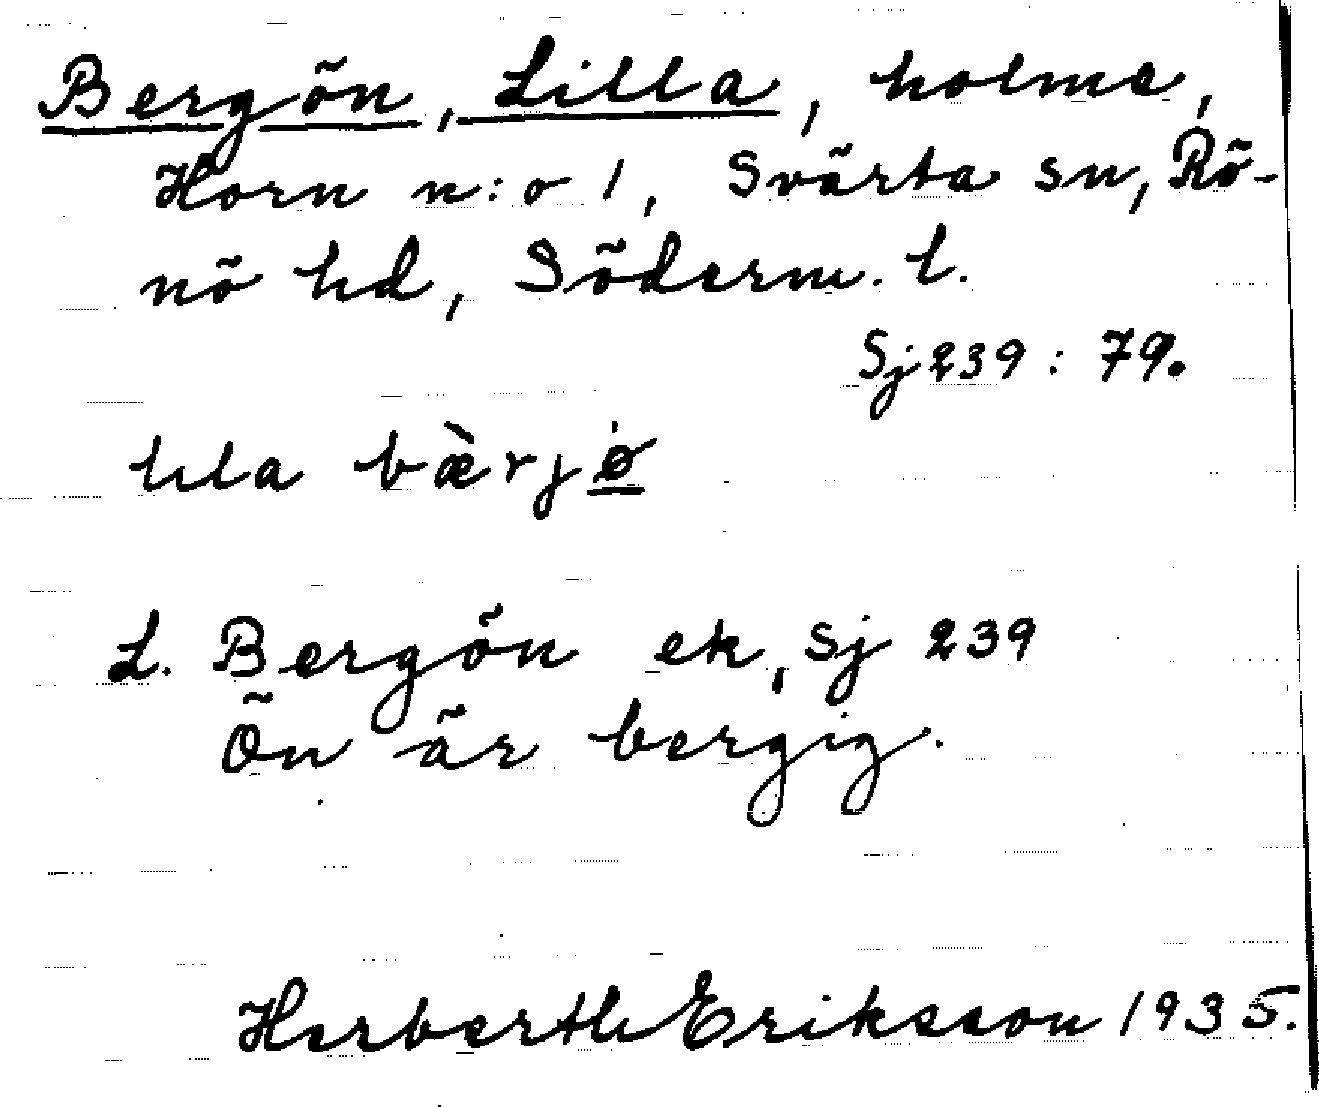 Bergön, Lilla, holme,
Horn n:o 1, Svärta sn, Rö-
nö hd, Söderm. l.
Sj 239 : 79.
lila bæ̀rjø̇
L. Bergön ek, Sj 239
Ön är bergig.
Herberth Eriksson 1935.